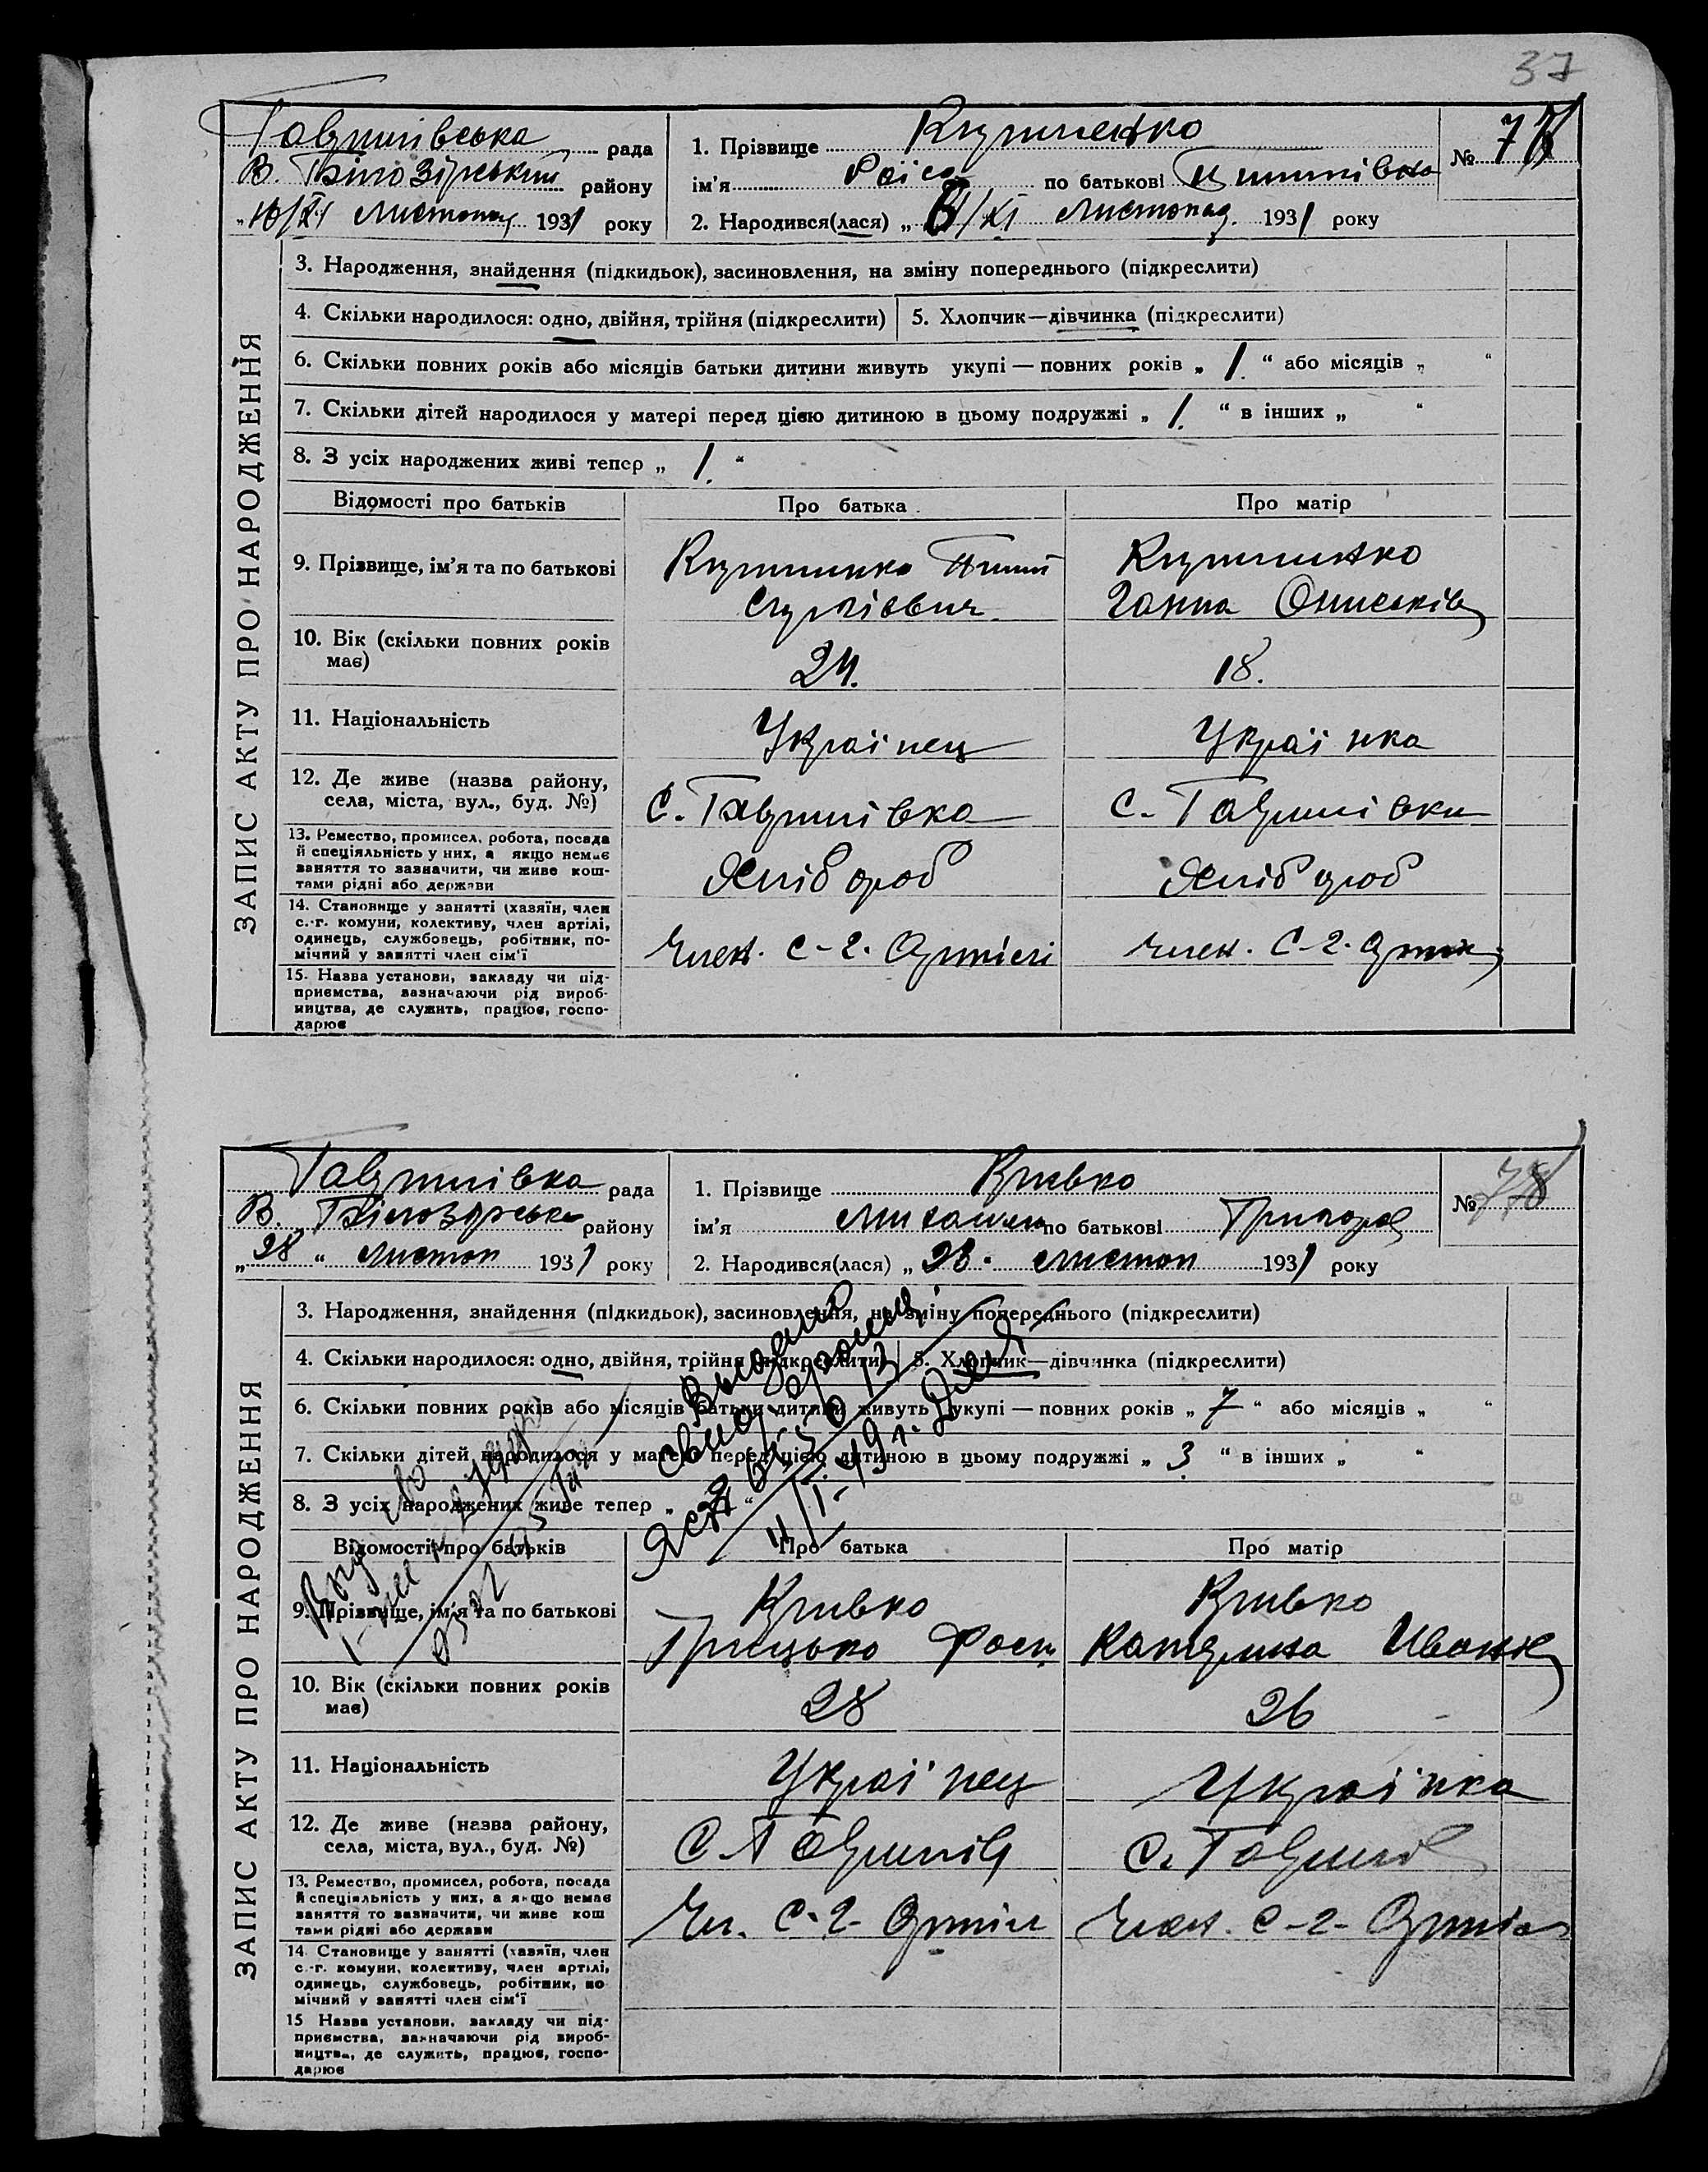 37
Гаврилівська рада
В. Білозірський району
1931 року
1. Прізвище
№ 77
ім'я Раїса по батькові
2. Народився(лася) „ /XI Листопад 1931 року
ЗАПИС АКТУ ПРО НАРОДЖЕННЯ
3. Народження, знайдення (підкидьок), засиновлення, на зміну попереднього (підкреслити)
4. Скільки народилося: одно, двійня, трійня (підкреслити)
5. Хлопчик—дівчинка (підкреслити)
6. Скільки повних років або місяців батьки дитини живуть укупі — повних років „ 1. “ або місяців „ “
7. Скільки дітей народилося у матері перед цією дитиною в цьому подружжі „ 1. “ в інших „ “
8. З усіх народжених живі тепер „ 1. “
Відомості про батьків
Про батька
Про матір
9. Прізвище, ім'я та по батькові
Сергійович
Ганна
10. Вік (скільки повних років має)
24.
18.
11. Національність
Українец
Українка
12. Де живе (назва району, села, міста, вул., буд. №)
С. Гаврилівка
С. Гаврилівка
13. Ремество, промисел, робота, посада й спеціяльність у них, а якщо немає заняття то зазначити, чи живе коштами рідні або держави
Хлібороб
Хлібороб
14. Становище у занятті (хазяїн, член с.-г. комуни, колективу, член артілі, одинець, службовець, робітник, помічний у занятті член сім'ї
Член. С-г. Артілі
Член. С-г. Артілі
15. Назва установи, закладу чи підприємства, зазначаючи рід виробництва, де служить, працює, господарює
Гаврилівка рада
В. Білозірська району
„ 28 “ Листоп 1931 року
1. Прізвище Кривко
№ 78
ім'я Михайло по батькові Григоров
2. Народився(лася) „ 28. Листоп 1931 року
ЗАПИС АКТУ ПРО НАРОДЖЕННЯ
3. Народження, знайдення (підкидьок), засиновлення, на зміну попереднього (підкреслити)
4. Скільки народилося: одно, двійня, трійня (підкреслити)
5. Хлопчик—дівчинка (підкреслити)
6. Скільки повних років або місяців батьки дитини живуть укупі — повних років „ 7 “ або місяців „ “
7. Скільки дітей народилося у матері перед цією дитиною в цьому подружжі „ 3 “ в інших „ “
8. З усіх народжених живе тепер „
Відомості про батьків
Про батька
Про матір
9. Прізвище, ім'я та по батькові
Кривко
Грицько
Кривко
Катерина Іванів
10. Вік (скільки повних років має)
28
26
11. Національність
Українец
Українка
12. Де живе (назва району, села, міста, вул., буд. №)
С. Гаврилів
С. Гаврилів
13. Ремество, промисел, робота, посада й спеціяльність у них, а якщо немає заняття то зазначити, чи живе коштами рідні або держави
Чл. С-г. Артіл
Член. С-г. Артіл
14. Становище у занятті (хазяїн, член с.-г. комуни, колективу, член артілі, одинець, службовець, робітник, помічний у занятті член сім'ї
15. Назва установи, закладу чи підприємства, зазначаючи рід виробництва, де служить, працює, господарює